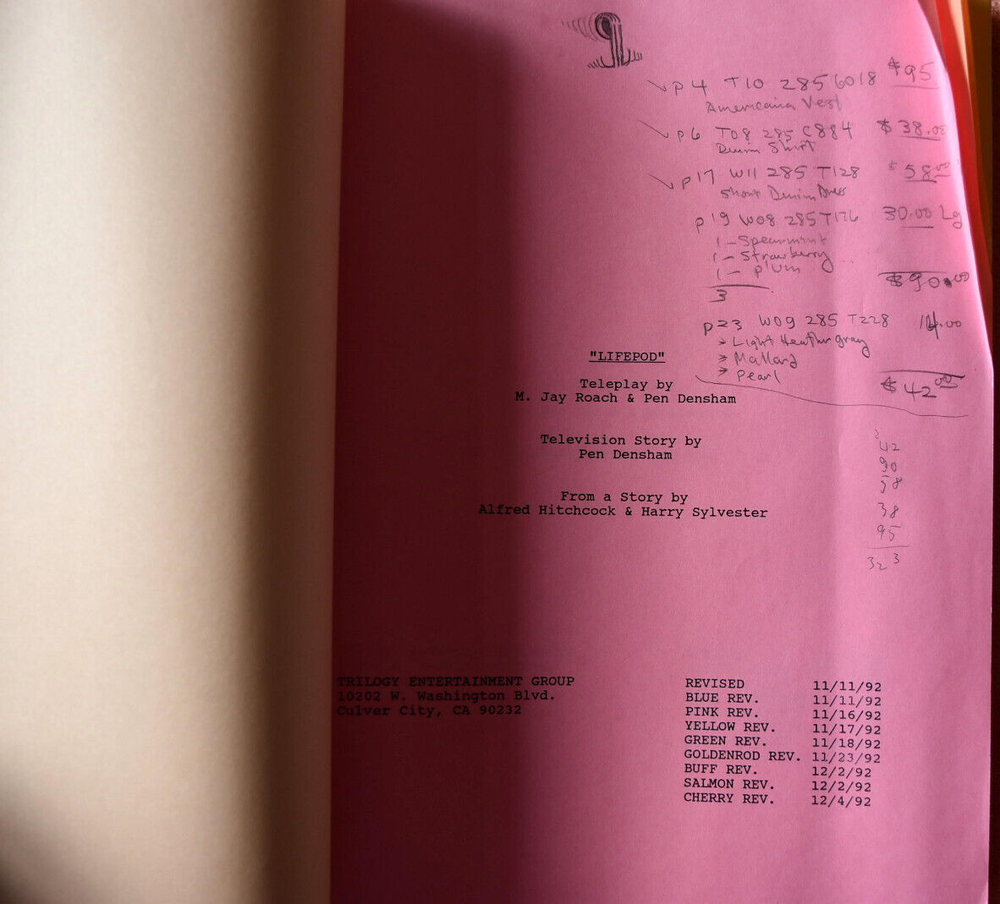 p4 T10 285 6018 $95
Americana Vest
p6 T08 285 C884 $38.00
Denim Shirt
p17 W11 285 T128 $58.00
Short Denim Dress
p19 W08 285 T176 30.00 Lg
1 - Spearmint
1 - Strawberry
1 - Plum
3 $90.00
p23 W09 285 T228 14.00
> Light Heather gray
> Mallard
> Pearl
$42.00
"LIFEPOD"
Teleplay by
M. Jay Roach & Pen Densham
Television Story by
Pen Densham
From a Story by
Alfred Hitchcock & Harry Sylvester
3
42
90
58
38
95
323
TRILOGY ENTERTAINMENT GROUP
10202 W. Washington Blvd.
Culver City, CA 90232
REVISED 11/11/92
BLUE REV. 11/11/92
PINK REV. 11/16/92
YELLOW REV. 11/17/92
GREEN REV. 11/18/92
GOLDENROD REV. 11/23/92
BUFF REV. 12/2/92
SALMON REV. 12/2/92
CHERRY REV. 12/4/92